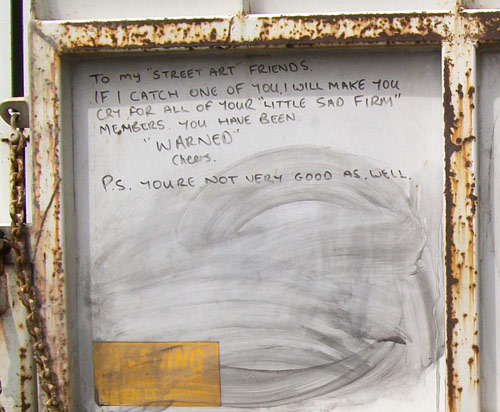 TO MY "STREET ART" FRIENDS.
IF I CATCH ONE OF YOU, I WILL MAKE YOU
CRY FOR ALL OF YOUR "LITTLE SAD FIRM"
MEMBERS. YOU HAVE BEEN
"WARNED"
CHEERS.
P.S. YOURE NOT VERY GOOD AS. WELL.